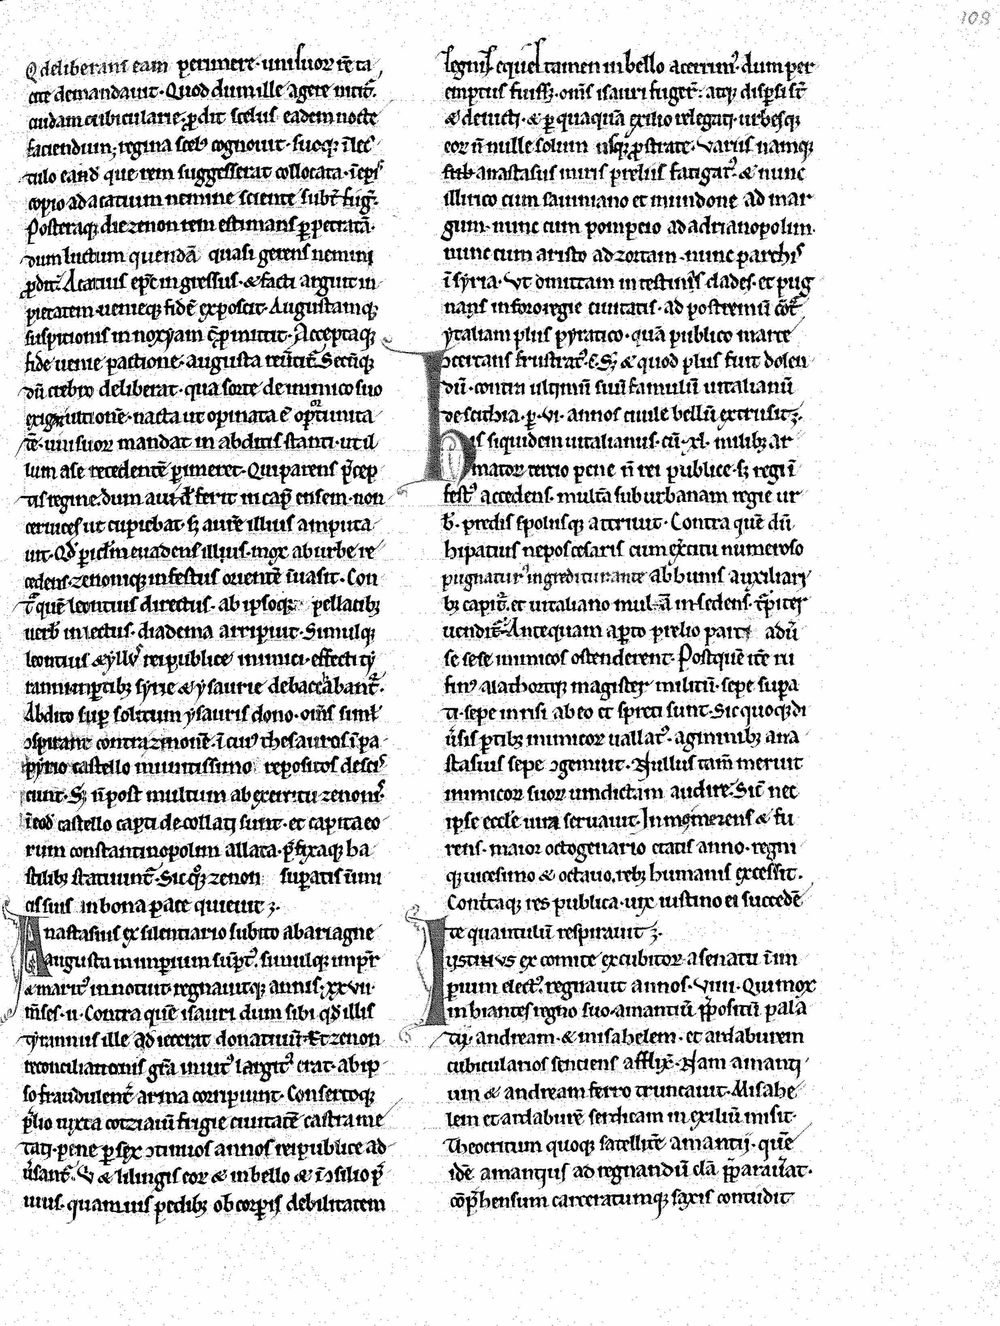 108
Q deliberans eam perimere · uni suor rē ta
cite demandauit · Quod dum ille agere nitit̄ ·
cuidam cubicularie ꝓdit scelus eadem nocte
faciendum; regina scelꝰ cognouit · suoq; ī lec
tulo eand que rem suggesserat collocata · īep̄i
copio ad acatium nemine sciente subt̄ fuḡ ·
Posteraq; die zenon rem estimans ꝑpetratā ·
dum luctum quendā quasi gerens nemini
ꝓdit̄ Acatius ep̄c ingressus · & facti arguit in
pietatem · uenieq; fidē exposcit · Augustamq;
suspitionis innoxyam cōprimittit · Acceptaq;
fide uenie pactione · augusta reūtit̄ Secūq;
dū crebro deliberat · qua sorte de inimico suo
exigat ultionē · nacta ut opinata ē oportunita
tē · uni suor mandat in abditis stanti · ut il
lum a se recedentē ꝑimeret · Qui parens p̄cep
tis regine · dum auid ferit in cap̄ ensem · non
ceruices ut cupiebat · s; aurē illius amputa
uit · Qd̄ piclm̄ euadens illius · mox ab urbe re
cedens · zenoniq; infestus orientē īuasit · Con
t̄ quē leontius directus · ab ipsoq; pellatib;
uerb̄ inlectus · diadema arripuit · Simulq;
leontius & yllꝰ rei publice inimici · effecti ty
ranni · in ꝑtib; syrie & ysaurie debaccabant̄ ·
Abdito sup solitum ysauris dono · om̄s siml̄
ↄspirant contra zenonē · ī cuiꝰ thesauros ī pa
pyrio castello munitissimo repositos desci
ciunt · S; n̄ post multum ab exercitu zenonis
ī eod castello capti decollati sunt · et capita eo
rum constantinopolim allata · p̄fixaq; ha
stilib; statuunt̄ · Sic q; zenon supatis inimi
cis suis in bona pace quieuit ·
Anastasius ex silentiario subito ab ariagne
augusta in imperium supt̄ · simulq; impr̄
& maritꝰ innotuit regnauitq; annis · xxvii ·
m̄ses · ii · Contra quē isauri dum sibi qd̄ illis
tyrannus ille adiecerat donatiuū · Et zenon
reconciliationis gr̄a inuitꝰ largitꝰ erat · ab ip
so fraudulent̄ arma corripiunt · Consertoq;
p̄lio iuxta cotziaiū frigie ciuitatē castra me
tati · pene ꝑ sex ↄtinuos annos rei publice ad
ūsant̄ · V & lilingis eor & in bello & ī ↄsilio p̄
uius · quamuis pedib; ob corꝑis debilitatem
segnis · eques tamen in bello acerrimꝰ · dum per
emptus fuiss; · om̄s isauri fuger̄ · atq; disp̄si st̄
& deiucti · & ꝑ quaquā exilio relegati · urbesq;
eor n̄ nulle solum usq; ꝓstrate · Variis namq;
sub anastasius miris preliis fatigat̄ · & nunc
illirico cum sauiniano et mundone ad mar
gum · nunc cum pompeio ad adrianopolim ·
nunc cum aristo ad zortam · nunc parthis
ī syria · Vt omittam intestinas clades · et pug
nans in foro regie ciuitatis · ad postremū cōt̄
ytaliam plus pyratico · quā publico marte
ↄcertans frustratꝰ · ē S; & quod plus fuit dolen
dū · contra ultimū suū famulū uitalianū
de scithia · ꝑ · vi · annos ciuile bellū extrusit ·
his siquidem uitalianus · cū · xl · milib; ar
mator tercio pene n̄ rei publice · s; regi ī
festꝰ accedens · multa suburbanam regie ur
b̄ · predis spoliisq; attriuit · Contra quē dū
hipatius nepos cesaris cum ex̄citu numeroso
pugnaturꝰ ingreditur · ante ab hunis auxiliary
b; capit̄ · et uitaliano mulā insedens · t̄piter
uendit̄ · Antequam apto prelio parti adū
se sese inimicos ostenderent · Postquē itē ru
finꝰ alathortiq; magister militū · sepe supa
ti · sepe inrisi ab eo et spreti sunt · Sic quoq; di
ūsis ꝑtib; inimicor uallatꝰ · agminib; ana
stasius sepe ↄgemuit · Nullus tam̄ meruit
inimicor suor uindictam audire · Sic nec
ipse eccle iura seruauit · In momerens & fu
rens · maior octogenario etatis anno · regni
q; uicesimo & octauo · reb; humanis excessit ·
Contraq; res publica · uix iustino ei succedē
te quantulū respirauit ·
Iustinus ex comite excubitor a senatu ī im
perium electꝰ · regnauit annos · Viiii · Qui mox
inhiantes regno suo · amantiū p̄positū pala
tii · andream · & misahelem · et ardaburem
cubicularios sentiens afflix̄ · Nam amanti
um & andream ferro truncauit · Misahe
lem et ardaburē serdicam in exiliū misit ·
Theocritum quoq; satellitē amantii · quē
idē amantius ad regnandū clā p̄parauat ·
cōp̄hensum carceratumq; saxis contudit